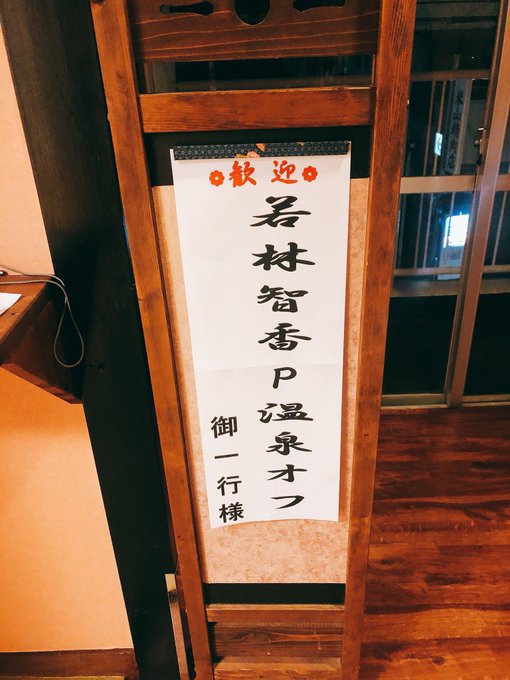 歓迎
若林智香P温泉オフ
御一行様